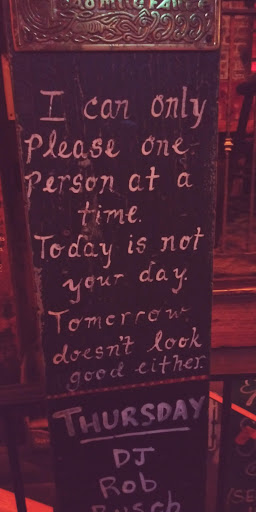 I can only
Please one
Person at a
time.
Today is not
your day.
Tomorrow
doesn't look
good either.
THURSDAY
DJ
Rob